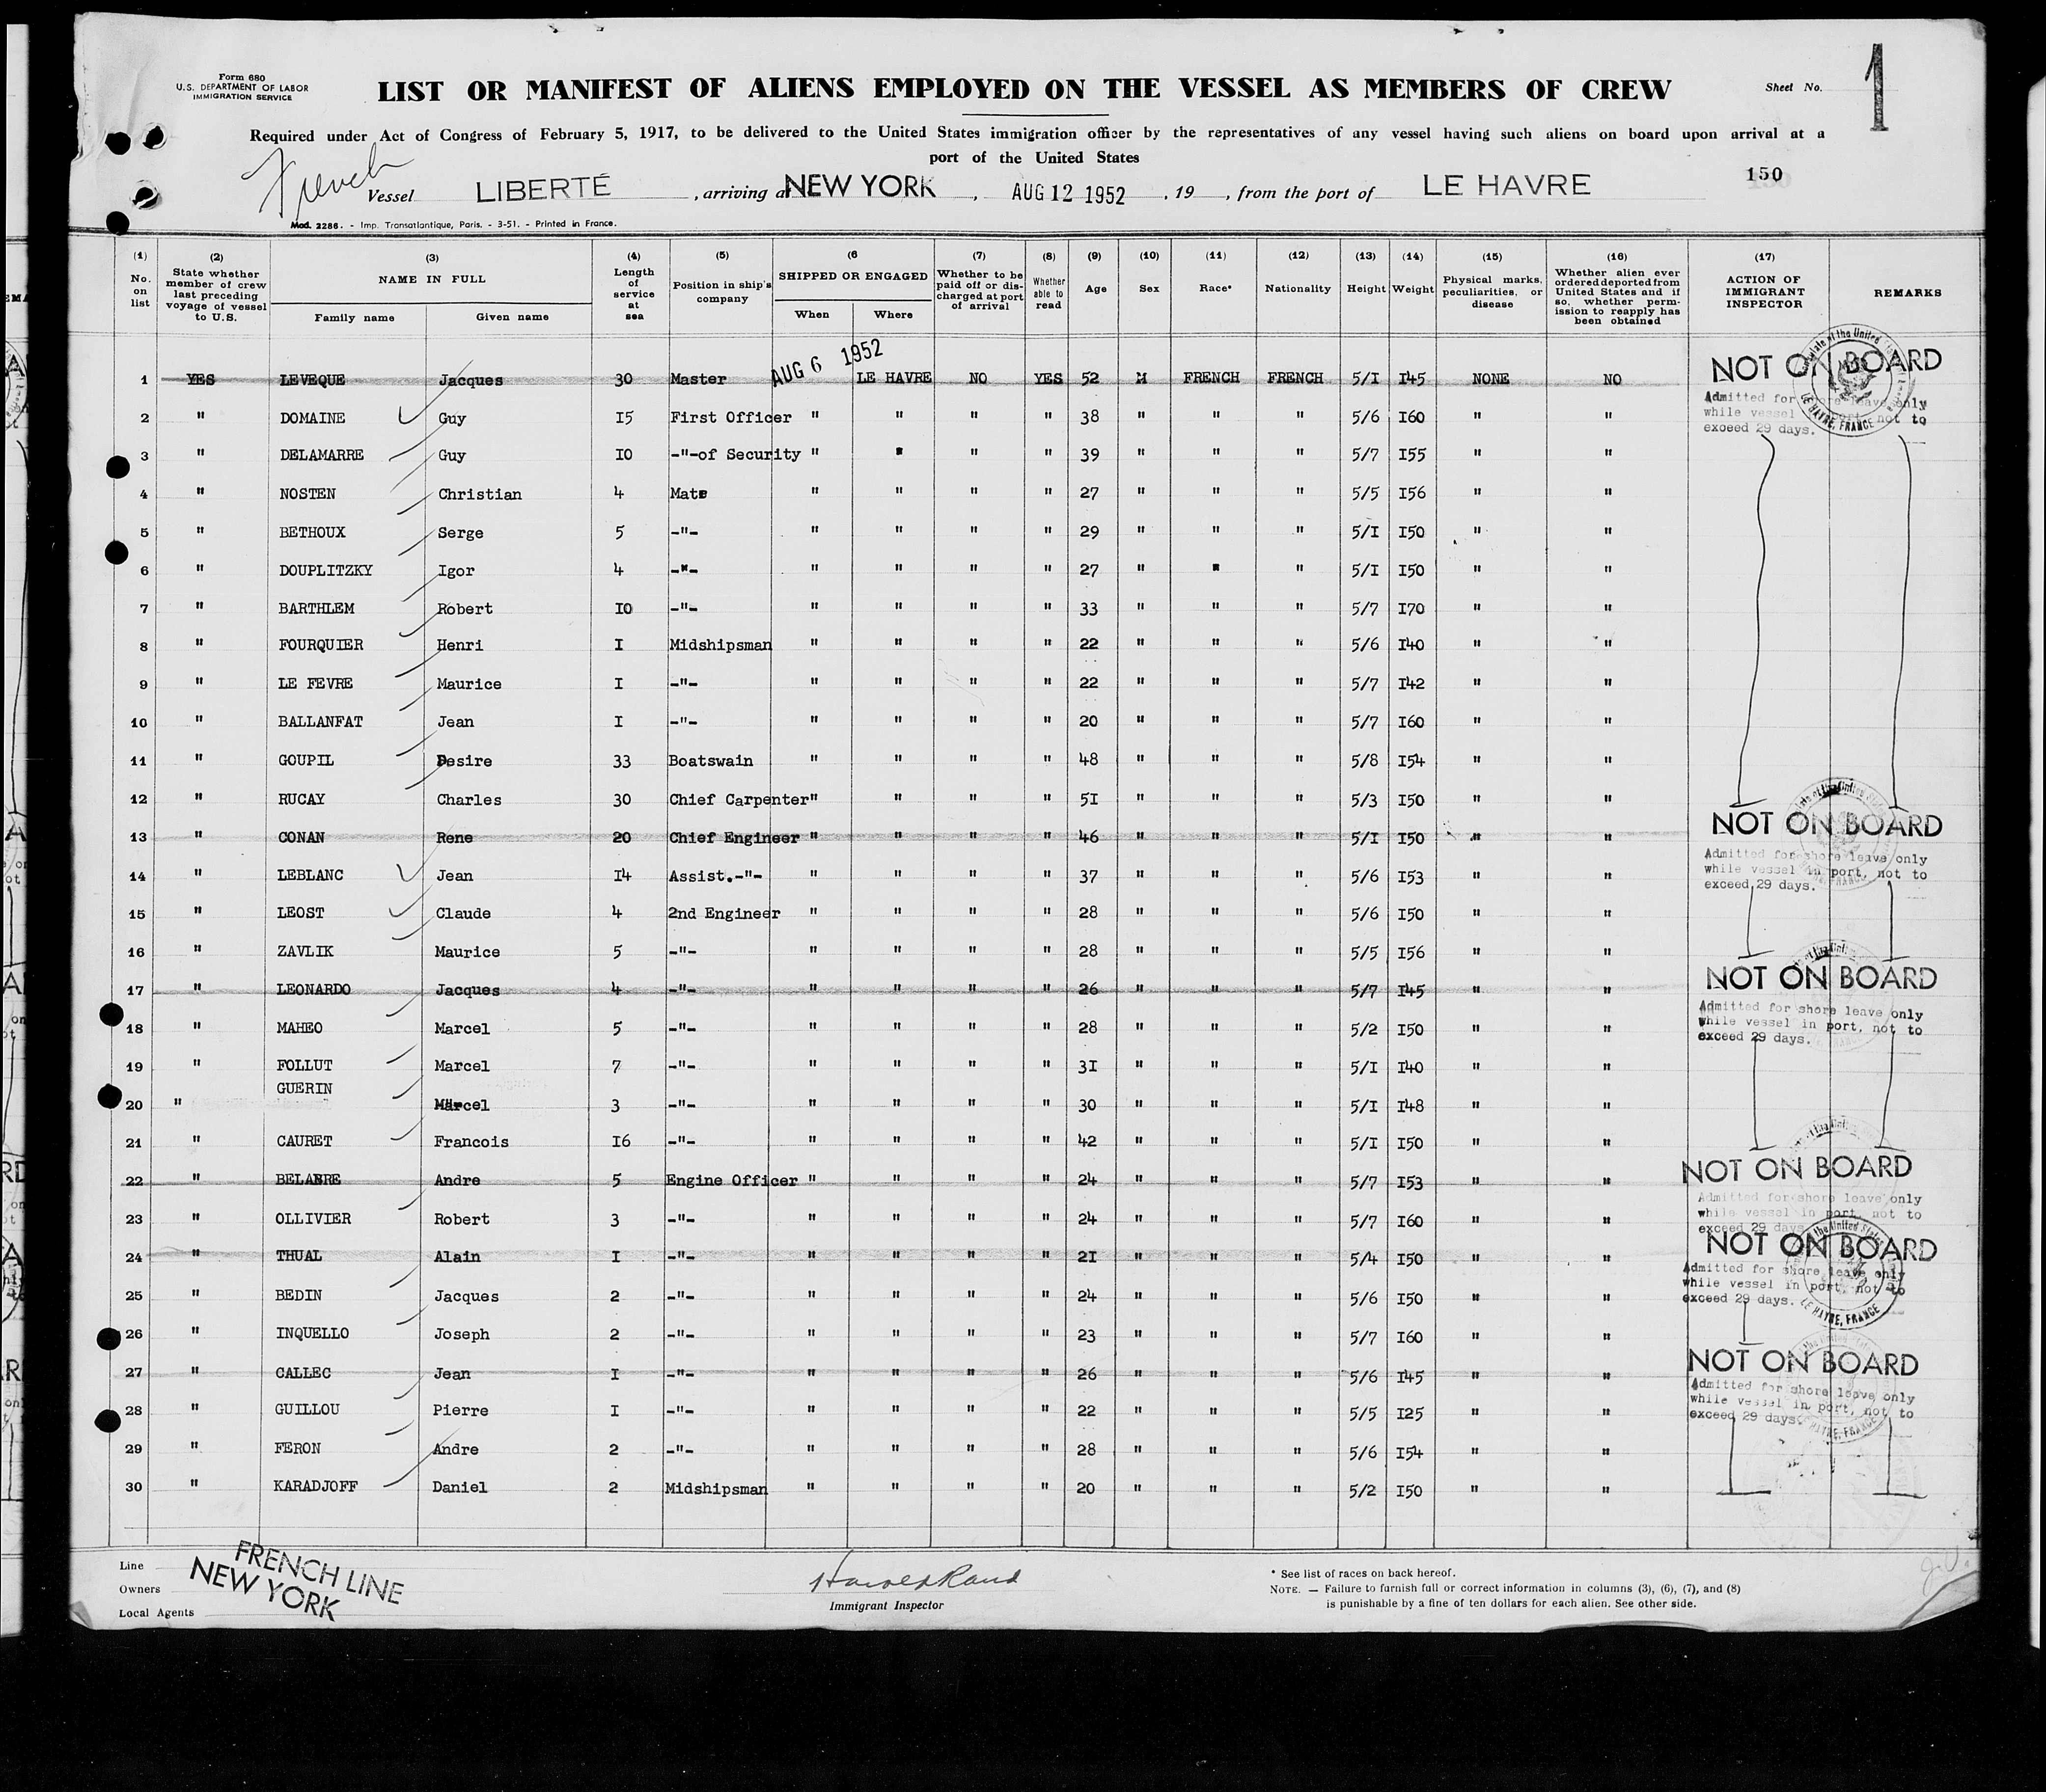 Form 680
U.S. DEPARTMENT OF LABOR
IMMIGRATION SERVICE
LIST OR MANIFEST OF ALIENS EMPLOYED ON THE VESSEL AS MEMBERS OF CREW
Sheet No. 1
Required under Act of Congress of February 5, 1917, to be delivered to the United States immigration officer by the representatives of any vessel having such aliens on board upon arrival at a
port of the United States
150
French
Vessel LIBERTÉ, arriving at NEW YORK, AUG 12 1952, 19 , from the port of LE HAVRE
Mod. 2286. - Imp. Transatlantique, Paris. - 3-51. - Printed in France.
(1) No. on list
(2) State whether member of crew last preceding voyage of vessel to U.S.
(3) NAME IN FULL
Family name
Given name
(4) Length of service at sea
(5) Position in ship's company
(6 SHIPPED OR ENGAGED
When
Where
(7) Whether to be paid off or discharged at port of arrival
(8) Whether able to read
(9) Age
(10) Sex
(11) Race*
(12) Nationality
(13) Height
(14) Weight
(15) Physical marks, peculiarities, or disease
(16) Whether alien ever ordered deported from United States and if so, whether permission to reapply has been obtained
(17) ACTION OF IMMIGRANT INSPECTOR
REMARKS
1 YES LEVEQUE Jacques 30 Master AUG 6 1952 LE HAVRE NO YES 52 M FRENCH FRENCH 5/I I45 NONE NO NOT ON BOARD
2 " DOMAINE Guy I5 First Officer " " " " 38 " " " 5/6 I60 " " Admitted for shore leave only while vessel in port, not to exceed 29 days.
3 " DELAMARRE Guy IO -"-of Security " " " " 39 " " " 5/7 I55 " "
4 " NOSTEN Christian 4 Mate " " " " 27 " " " 5/5 I56 " "
5 " BETHOUX Serge 5 -"- " " " " 29 " " " 5/I I50 " "
6 " DOUPLITZKY Igor 4 -"- " " " " 27 " " " 5/I I50 " "
7 " BARTHLEM Robert IO -"- " " " " 33 " " " 5/7 I70 " "
8 " FOURQUIER Henri I Midshipsman " " " " 22 " " " 5/6 I40 " "
9 " LE FEVRE Maurice I -"- " " " " 22 " " " 5/7 I42 " "
10 " BALLANFAT Jean I -"- " " " " 20 " " " 5/7 I60 " "
11 " GOUPIL Desire 33 Boatswain " " " " 48 " " " 5/8 I54 " "
12 " RUCAY Charles 30 Chief Carpenter " " " " 5I " " " 5/3 I50 " "
13 " CONAN Rene 20 Chief Engineer " " " " 46 " " " 5/I I50 " " NOT ON BOARD
14 " LEBLANC Jean I4 Assist.-"- " " " " 37 " " " 5/6 I53 " " Admitted for shore leave only while vessel in port, not to exceed 29 days.
15 " LEOST Claude 4 2nd Engineer " " " " 28 " " " 5/6 I50 " "
16 " ZAVLIK Maurice 5 -"- " " " " 28 " " " 5/5 I56 " "
17 " LEONARDO Jacques 4 -"- " " " " 26 " " " 5/7 I45 " " NOT ON BOARD
18 " MAHEO Marcel 5 -"- " " " " 28 " " " 5/2 I50 " " Admitted for shore leave only while vessel in port, not to exceed 29 days.
19 " FOLLUT Marcel 7 -"- " " " " 3I " " " 5/I I40 " "
20 " GUERIN Marcel 3 -"- " " " " 30 " " " 5/I I48 " "
21 " CAURET Francois I6 -"- " " " " 42 " " " 5/I I50 " "
22 " BELABRE Andre 5 Engine Officer " " " " 24 " " " 5/7 I53 " " NOT ON BOARD
23 " OLLIVIER Robert 3 -"- " " " " 24 " " " 5/7 I60 " " Admitted for shore leave only while vessel in port, not to exceed 29 days
24 " THUAL Alain I -"- " " " " 2I " " " 5/4 I50 " " NOT ON BOARD
25 " BEDIN Jacques 2 -"- " " " " 24 " " " 5/6 I50 " " Admitted for shore leave only while vessel in port, not to exceed 29 days.
26 " INQUELLO Joseph 2 -"- " " " " 23 " " " 5/7 I60 " "
27 " CALLEC Jean I -"- " " " " 26 " " " 5/6 I45 " " NOT ON BOARD
28 " GUILLOU Pierre I -"- " " " " 22 " " " 5/5 I25 " " Admitted for shore leave only while vessel in port, not to exceed 29 days.
29 " FERON Andre 2 -"- " " " " 28 " " " 5/6 I54 " "
30 " KARADJOFF Daniel 2 Midshipsman " " " " 20 " " " 5/2 I50 " "
Line
Owners
Local Agents
FRENCH LINE
NEW YORK
Harold Rand
Immigrant Inspector
* See list of races on back hereof.
NOTE. — Failure to furnish full or correct information in columns (3), (6), (7), and (8)
is punishable by a fine of ten dollars for each alien. See other side.
J.V.